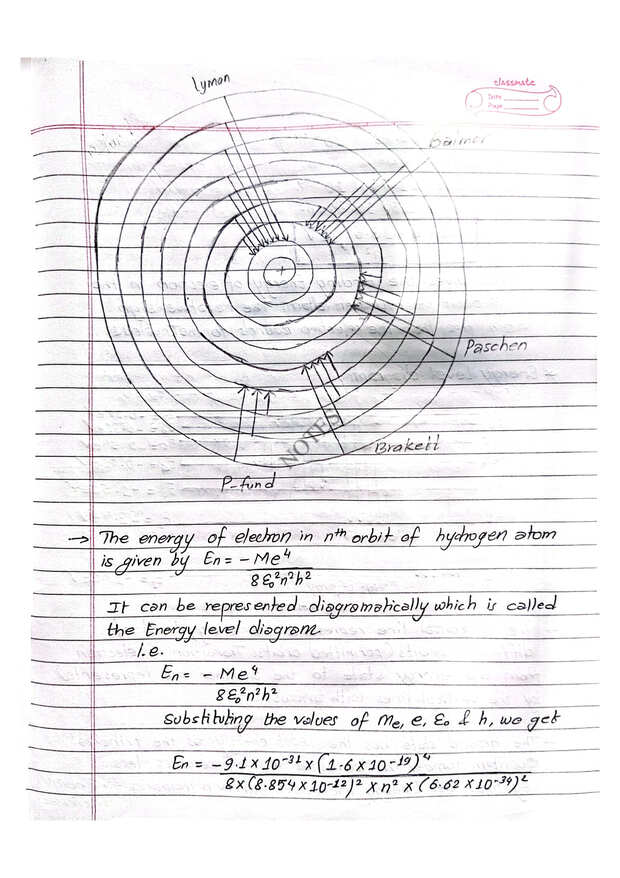 classmate
Date
Page
Lyman
Balmer
Paschen
Brakett
P-fund
NOTES
→ The energy of electron in nth orbit of hydrogen atom
is given by En = -Me⁴ / 8ε₀²n²h²
It can be represented diagramatically which is called
the Energy level diagram
I.e.
En = - Me⁴ / 8ε₀²n²h²
Substituting the values of Me, e, ε₀ & h, we get
En = -9.1 × 10⁻³¹ × (1.6 × 10⁻¹⁹)⁴ / 8 × (8.854 × 10⁻¹²)² × n² × (6.62 × 10⁻³⁴)²